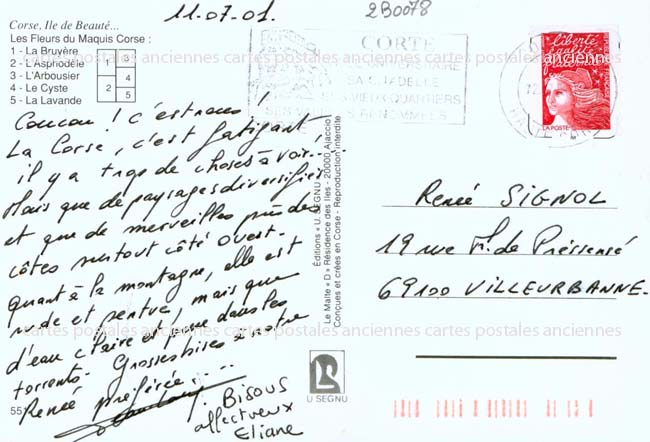 11.07.01.
2B0078
Corse, Ile de Beauté...
Les Fleurs du Maquis Corse :
1 - La Bruyère
2 - L'Asphodèle
3 - L'Arbousier
4 - Le Cyste
5 - La Lavande
1 3
4
2 5
CORTE
SA CITADELLE
VIEUX QUARTIERS
RENOMMEES
liberté
égalité
fraternité
LA POSTE
Coucou ! c'est nous !
La Corse, c'est fatigant
il y a trop de choses à voir !
Mais que de paysages diversifiés
et que de merveilles près des
côtes surtout côté ouest.
quant à la montagne, elle est
rude et pentue, mais que
d'eau claire et pure dans les
torrents. Grosses bises à notre
Renée préférée....
Bisous
affectueux
Eliane
551
Editions « U. SEGNU »
Le Malte « D » Résidence des Iles - 20000 Ajaccio
Conçues et créées en Corse - Reproduction interdite
U SEGNU
Renée SIGNOL
19 rue F. de Préssensé
69100 VILLEURBANNE.
cartes postales anciennes cartes postales anciennes cartes postales anciennes
cartes postales anciennes cartes postales anciennes cartes postales anciennes